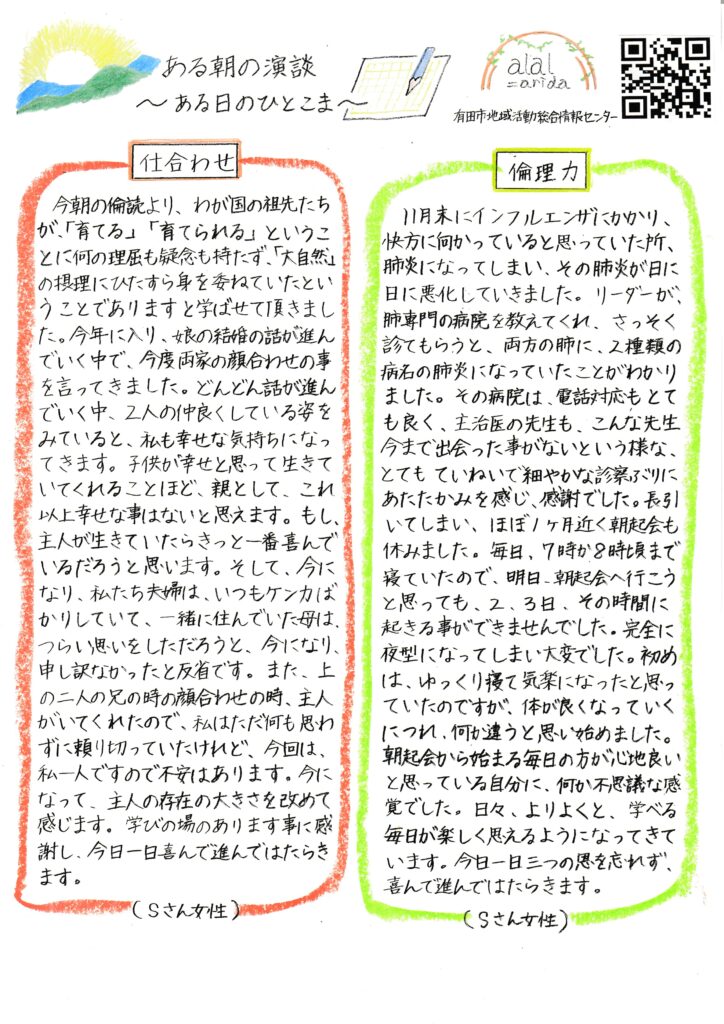 ある朝の演談
～ある日のひとこま～
alal
=arida
有田市地域活動総合情報センター
仕合わせ
今朝の倫読より、わが国の祖先たち
が、「育てる」「育てられる」というこ
とに何の理屈も疑念も持たず、「大自然」
の摂理にひたすら身を委ねていたとい
うことでありますと学ばせて頂きまし
た。今年に入り、娘の結婚の話が進ん
でいく中で、今度両家の顔合わせの事
を言ってきました。どんどん話が進ん
でいく中、2人の仲良くしている姿を
みていると、私も幸せな気持ちになっ
てきます。子供が幸せと思って生きて
いてくれることほど、親として、これ
以上幸せな事はないと思えます。もし、
主人が生きていたらきっと一番喜んで
いるだろうと思います。そして、今に
なり、私たち夫婦は、いつもケンカば
かりしていて、一緒に住んでいた母は、
つらい思いをしただろうと、今になり、
申し訳なかったと反省です。また、上
の二人の兄の時の顔合わせの時、主人
がいてくれたので、私はただ何も思わ
ずに頼り切っていたけれど、今回は、
私一人ですので不安はあります。今に
なって、主人の存在の大きさを改めて
感じます。学びの場のあります事に感
謝し、今日一日喜んで進んではたらき
ます。
(Sさん女性)
倫理力
11月末にインフルエンザにかかり、
快方に向かっていると思っていた所、
肺炎になってしまい、その肺炎が日に
日に悪化していきました。リーダーが、
肺専門の病院を教えてくれ、さっそく
診てもらうと、両方の肺に、2種類の
病名の肺炎になっていたことがわかり
ました。その病院は、電話対応もとて
も良く、主治医の先生も、こんな先生
今まで出会った事がないという様な、
とてもていねいで細やかな診察ぶりに
あたたかみを感じ、感謝でした。長引
いてしまい、ほぼ1ヶ月近く朝起会も
休みました。毎日、7時か8時頃まで
寝ていたので、明日、朝起会へ行こう
と思っても、2、3日、その時間に
起きる事ができませんでした。完全に
夜型になってしまい大変でした。初め
は、ゆっくり寝て気楽になったと思っ
ていたのですが、体が良くなっていく
につれ、何か違うと思い始めました。
朝起会から始まる毎日の方が心地良い
と思っている自分に、何か不思議な感
覚でした。日々、よりよくと、学べる
毎日が楽しく思えるようになってきて
います。今日一日三つの恩を忘れず、
喜んで進んではたらきます。
(Sさん女性)